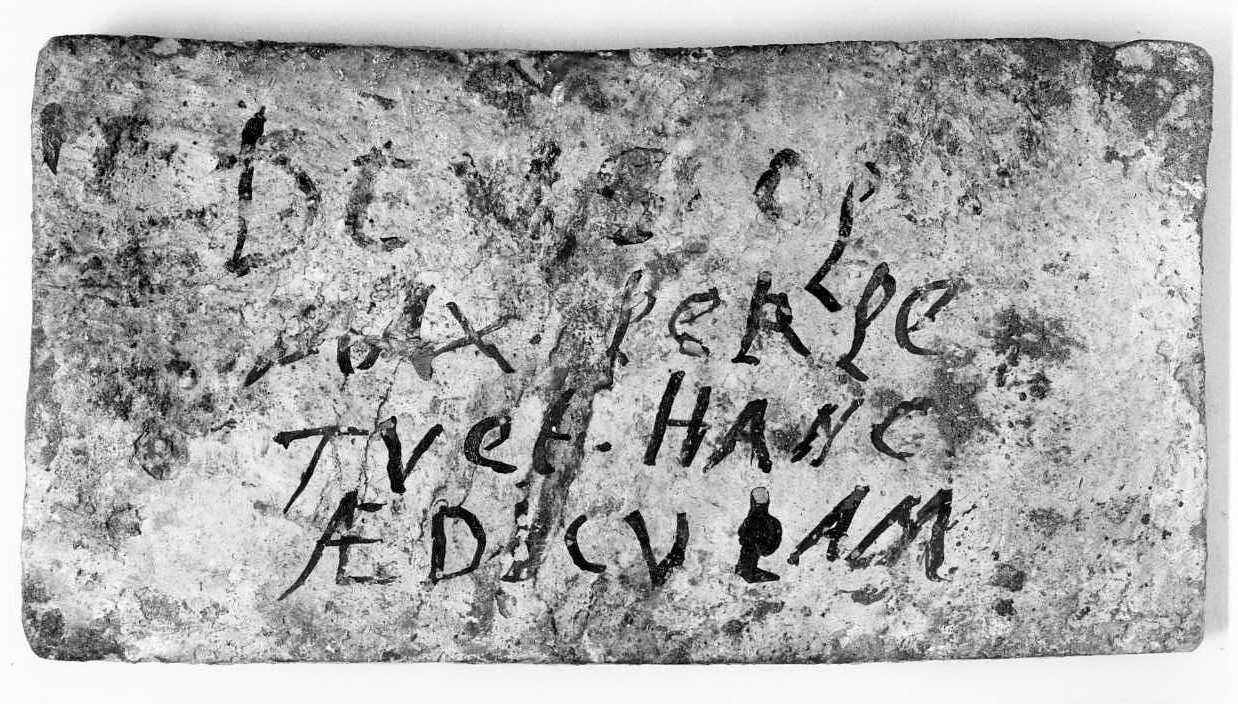 DeVS Op
MAX. peRpe
TVet. HANC
ÆDICVLAM